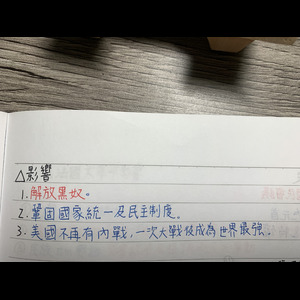 △影響
1.解放黑奴。
2.鞏固國家統一及民主制度。
3.美國不再有內戰,一次大戰後成為世界最強。